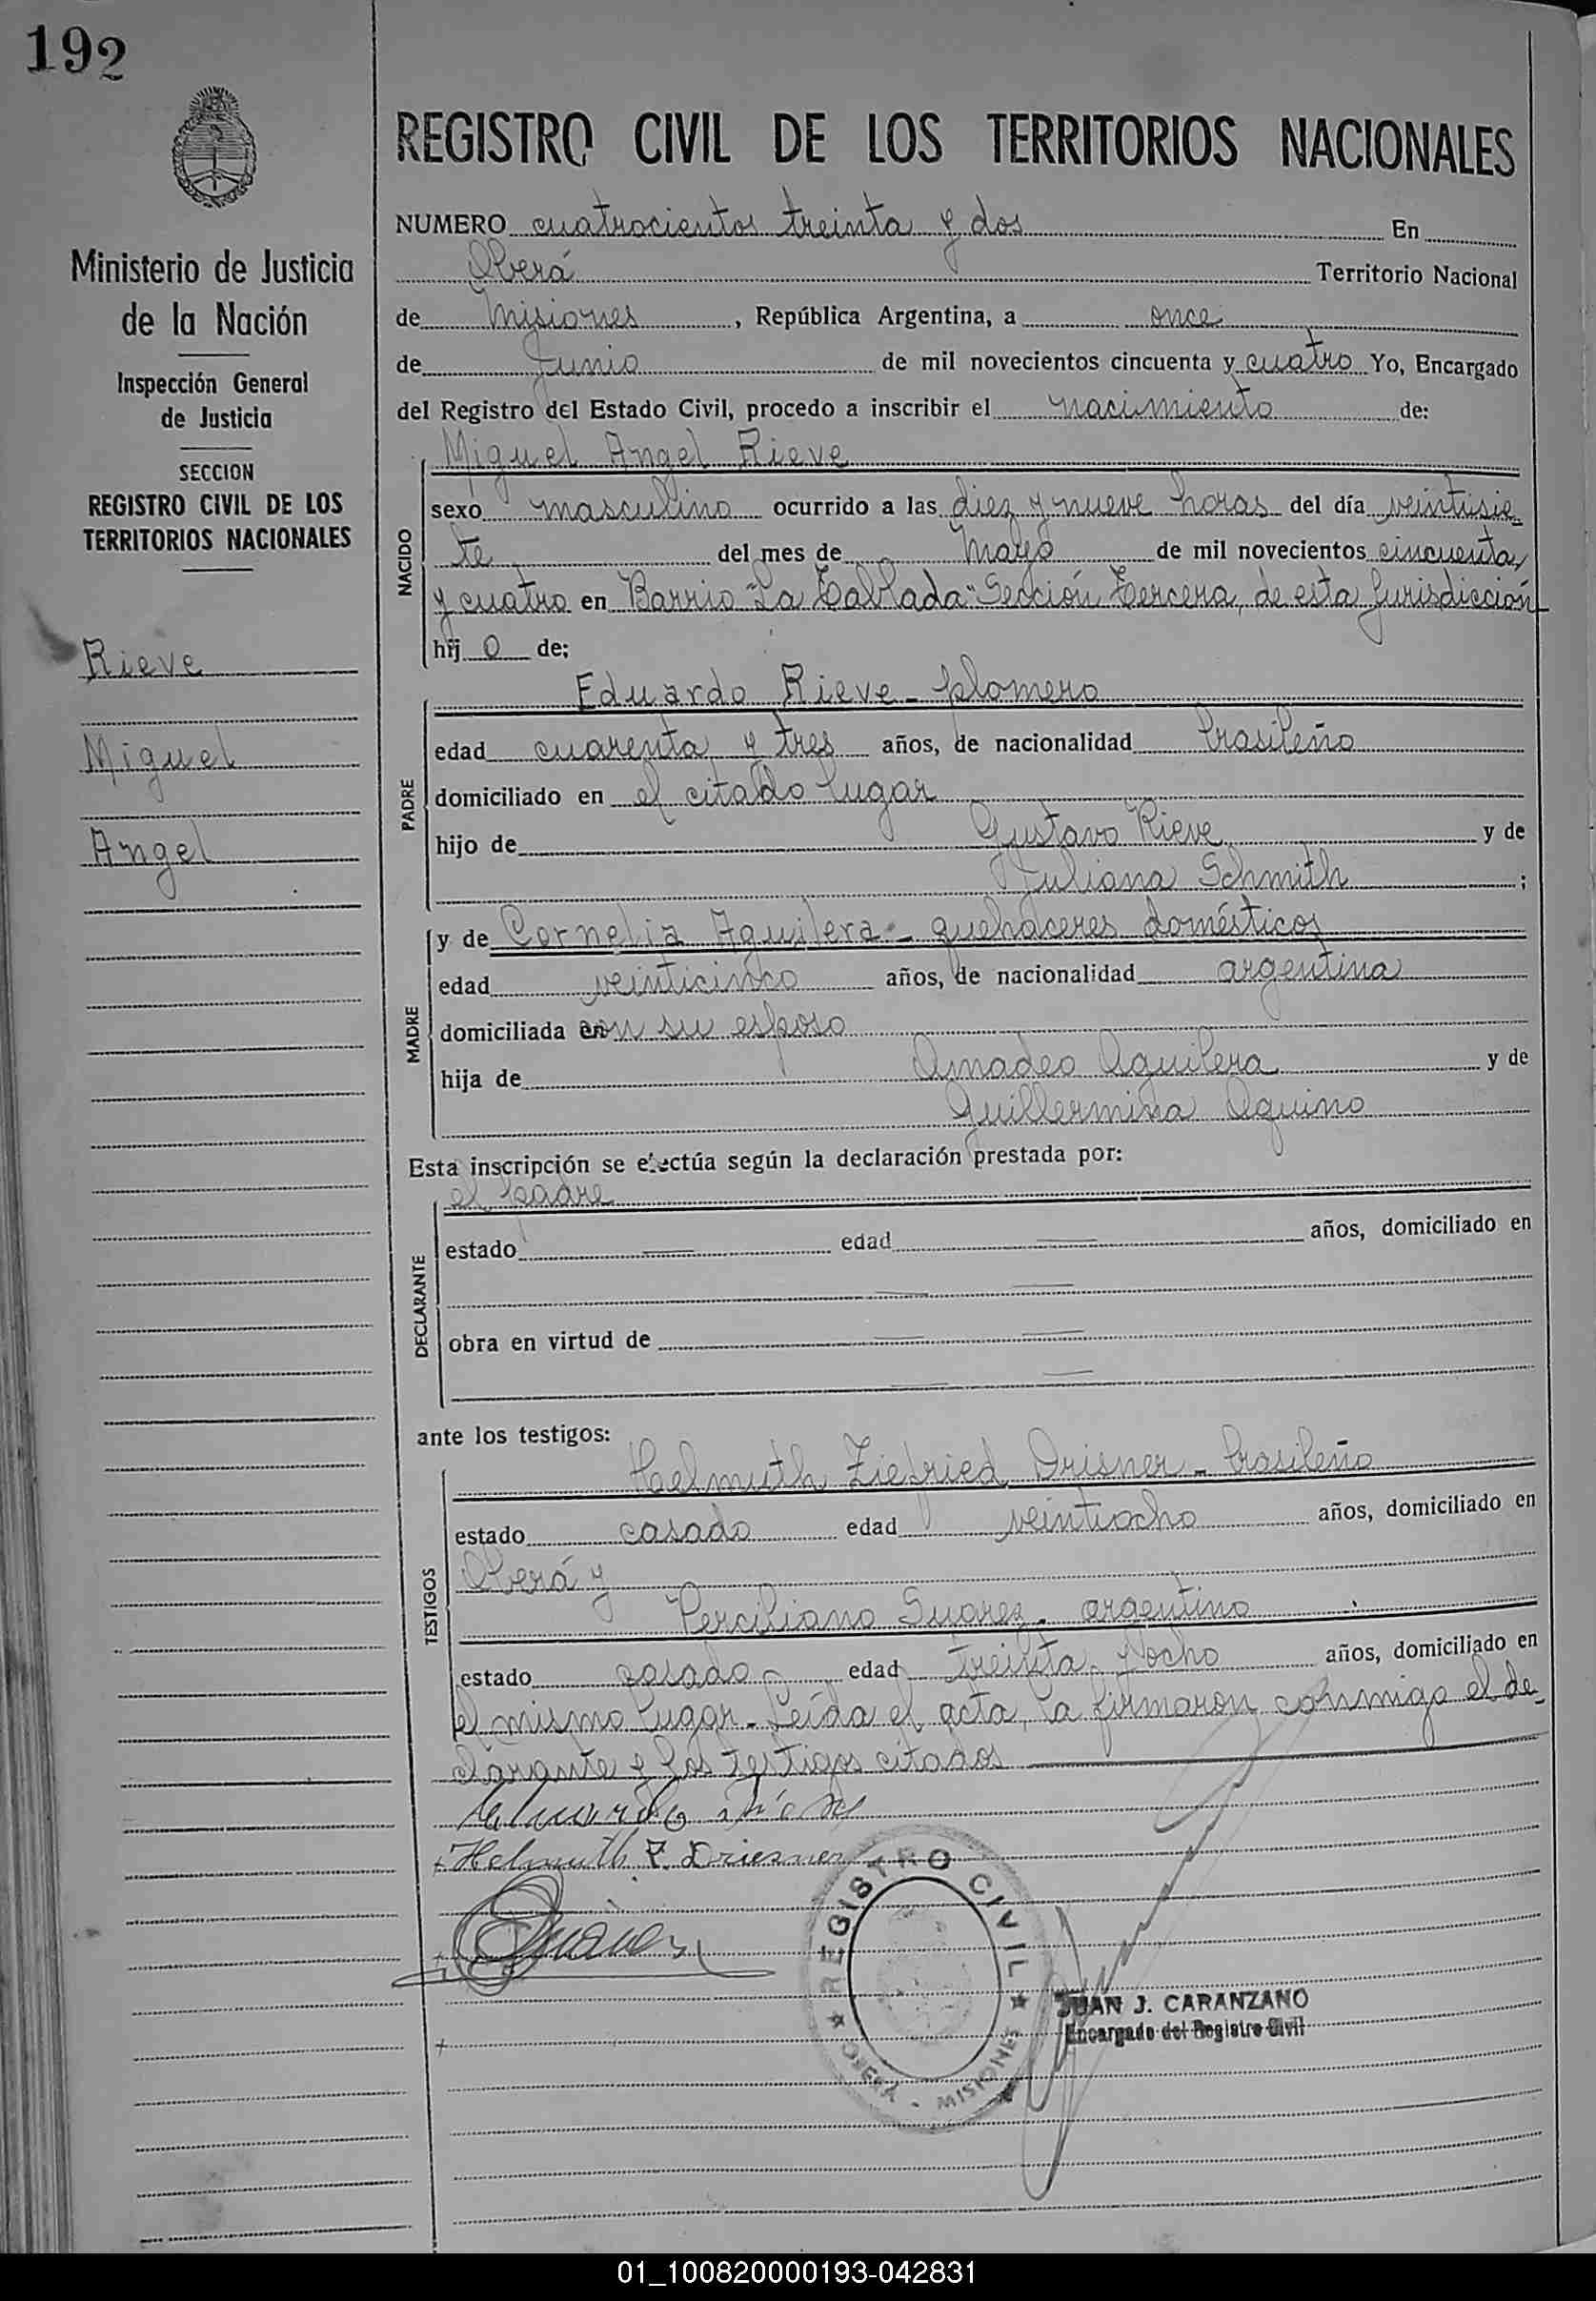 192
REGISTRO CIVIL DE LOS TERRITORIOS NACIONALES
Ministerio de Justicia
de la Nación
Inspección General
de Justicia
SECCION
REGISTRO CIVIL DE LOS
TERRITORIOS NACIONALES
Rieve
Miguel
Angel
NUMERO cuatrocientos treinta y dos En
Oberá Territorio Nacional
de Misiones, República Argentina, a once
de Junio de mil novecientos cincuenta y cuatro Yo, Encargado
del Registro del Estado Civil, procedo a inscribir el nacimiento de:
NACIDO
Miguel Angel Rieve
sexo masculino ocurrido a las diez y nueve horas del día veintisie
te del mes de Mayo de mil novecientos cincuenta
y cuatro en Barrio "La Tablada" Sección Tercera, de esta Jurisdicción
hij o de;
PADRE
Eduardo Rieve - plomero
edad cuarenta y tres años, de nacionalidad brasileño
domiciliado en el citado lugar
hijo de Gustavo Rieve y de
Juliana Schmith ;
MADRE
y de Cornelia Aguilera - quehaceres domésticos
edad veinticinco años, de nacionalidad argentina
domiciliada con su esposo
hija de Amadeo Aguilera y de
Guillermina Aquino
Esta inscripción se efectúa según la declaración prestada por:
DECLARANTE
el padre
estado — edad — años, domiciliado en
— —
obra en virtud de — —
—
ante los testigos:
TESTIGOS
Helmuth Ziefried Drisner - brasileño
estado casado edad veintiocho años, domiciliado en
Oberá y
Perciliano Suarez - argentino
estado casado - edad treinta y ocho años, domiciliado en
el mismo lugar - Leída el acta, la firmaron conmigo el de-
clarante y los testigos citados
Eduardo
Helmuth Z. Driesner
Suarez
REGISTRO CIVIL
OBERA - MISIONES
JUAN J. CARANZANO
Encargado del Registro Civil
01_100820000193-042831